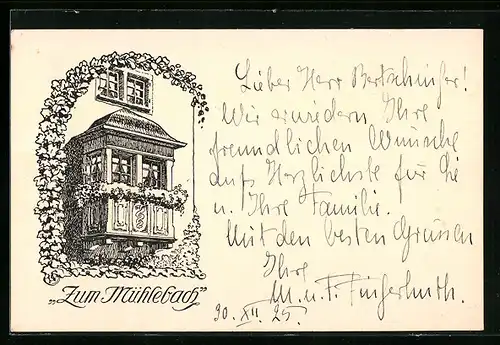 Lieber Herr Bertschinger!
Wir erwidern Ihre
freundlichen Wünsche
aufs Herzlichste für Sie
u. Ihre Familie.
Mit den besten Grüssen
Ihre
M. u. F. Fingerhuth.
30. XII. 25.
„Zum Mühlebach"